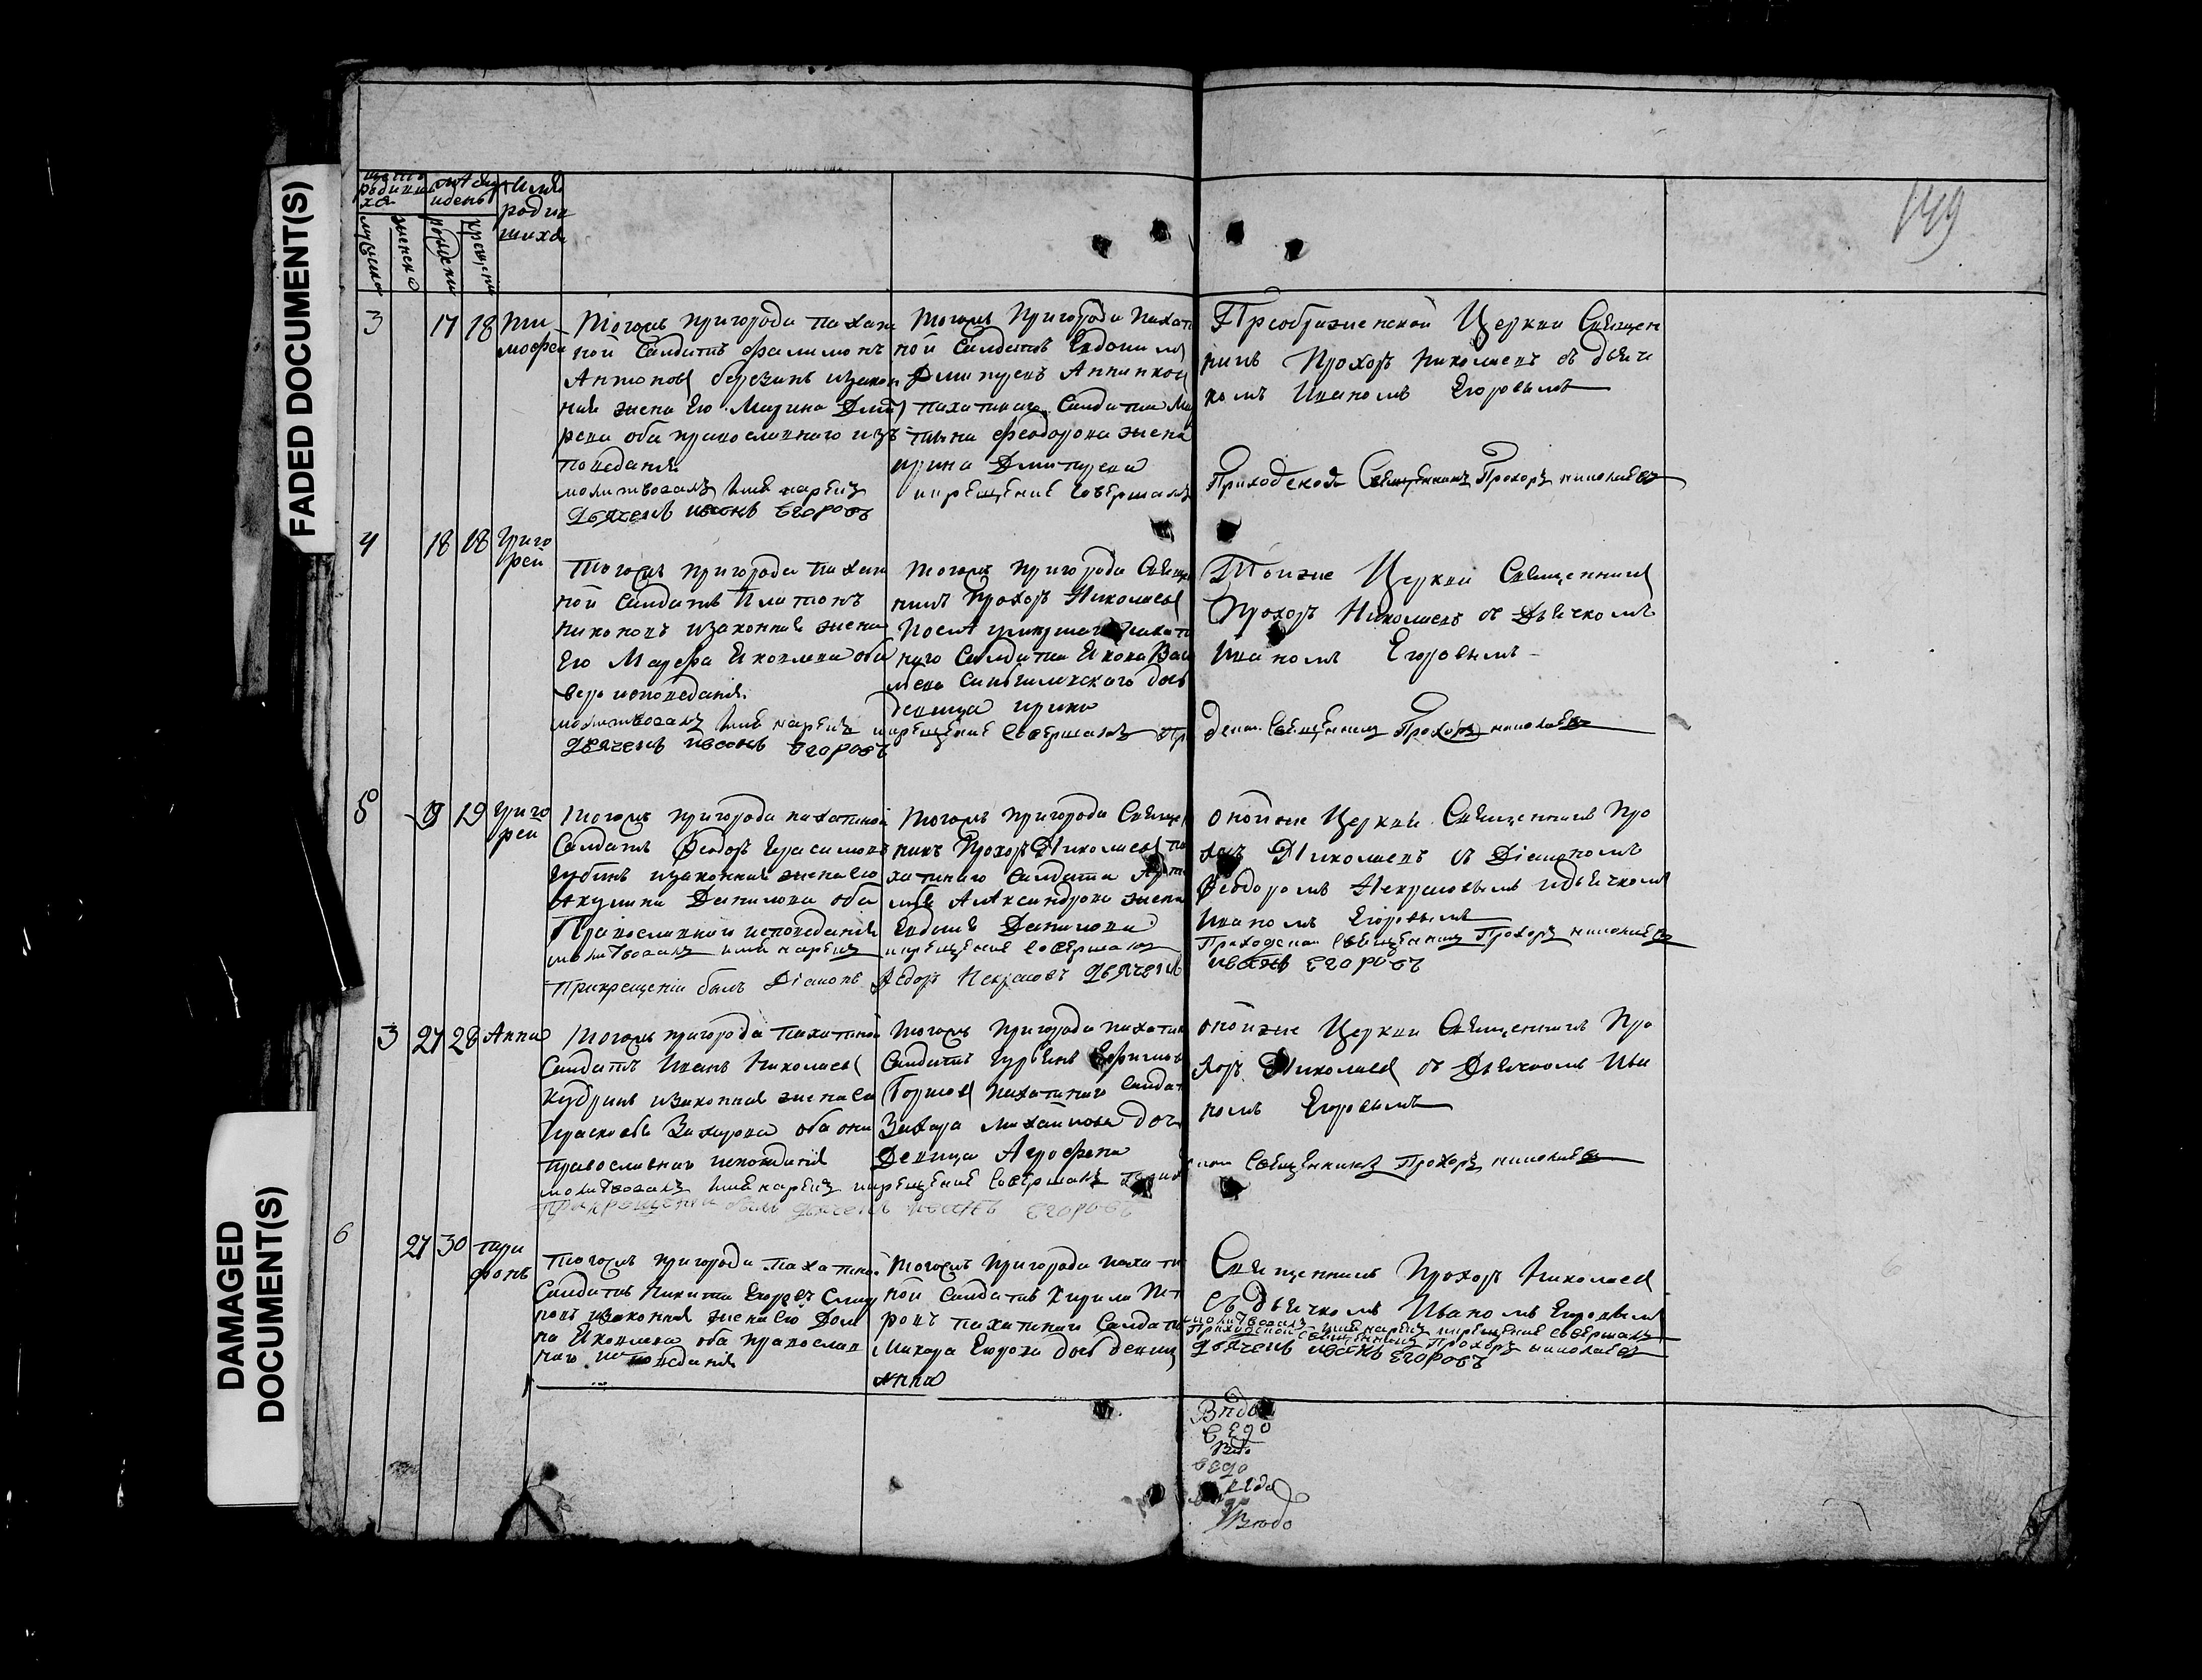 FADED DOCUMENT(S)
DAMAGED
DOCUMENT(S)
149
щетъ
родивши
хся
мѣсяцъ
и день
имя
роди
шихся
мужеска
женска
рожденія
крещенія
3 17 18 Ти
мофей
Тогожъ пригорода пахат
ной Салдатъ Филимонъ
Антоновъ березинъ изакон
ная жена Его Марина Дмит
рева оба православнаго изъ
поведанія
молитвовалъ имя нарекъ
дьячекъ иванъ Егоровъ
Тогожъ пригорода пахат
ной Салдатъ Евдоким
Дмитревъ Аннинков
пахатнаго Салдата Мар
тына Феодорова жена
ирина Дмитрева
и крещение совершалъ
Преображенской Церкви Священ
никъ Прохоръ Николаевъ съ дьяч
комъ Иваномъ Егоровымъ
Приходской Священникъ Прохоръ николаевъ
4 18 18 Григо
рей
Тогожъ пригорода пахат
ной Салдатъ Платонъ
Никоновъ изаконная жена
Его Марфа Яковлева оба
веро исповедания
молитвовалъ имя нарекъ
дьячекъ иванъ Егоровъ
Тогожъ пригорода Священ
никъ Прохоръ Николаев
После умершаго пахат
наго Салдата Якова Васи
льева Синбилихского дочь
девица ирина
и крещение совершалъ При
Тоиже Церкви Священник
Прохоръ Николаевъ съ Дьячкомъ
Иваномъ Егоровымъ
ской Священникъ Прохоръ николаевъ
5 19 19 Григо
рей
Тогожъ пригорода пахатной
Салдатъ Феодоръ Герасимовъ
Губинъ изаконная жена Ево
Акулина Данилова оба
Православнаго исповедания
молитвовалъ имя нарекъ
Прикрещении былъ Диаконъ
Тогожъ пригорода Священ
никъ Прохоръ Николаев па
хатнаго Салдата Арте
мья Александрова жена
Евдокия Данилова
и крещение совершалъ
Федоръ Некрасовъ дьячекъ
оноиже Церкви Священникъ Про
хоръ Николаевъ съ Диакономъ
Феодоромъ Некрасовымъ идьячкомъ
Иваномъ Егоровымъ
Приходской Священникъ Прохоръ николаевъ
иванъ Егоровъ
3 27 28 Анна
Тогожъ пригорода пахатной
Салдатъ Иванъ Николаев
Кудринъ изаконная жена Ево
Прасковья Захарова оба они
православнаго исповедания
молитвовалъ имя нарекъ
прикрещении былъ дьячекъ иванъ Егоровъ
Тогожъ пригорода пахатн
Салдатъ Гурьянъ Ефимов
пахатнаго Салдат
Захара михайлова дочь
Девица Агрофена
и крещение совершалъ Приход
оноиже Церкви Священникъ Про
хоръ Николаев съ Дьячкомъ Ива
номъ Егоровымъ
ской Священникъ Прохоръ николаевъ
6 27 30 Три
фонъ
Тогожъ пригорода пахатной
Салдатъ Никита Егоревъ
изаконная жена Ево Дом
на Яковлева оба православ
наго исповедания
Тогожъ пригорода пахат
ной Салдатъ Кирила Пет
ровъ пахатнаго Салдата
Макара Егорова дочь девица
Анна
Священникъ Прохоръ Николаев
съ дьячкомъ Иваномъ Егоровымъ
молитвовалъ имя нарекъ и крещение совершалъ
Приходской священникъ Прохоръ николаевъ
дьячекъ иванъ Егоровъ